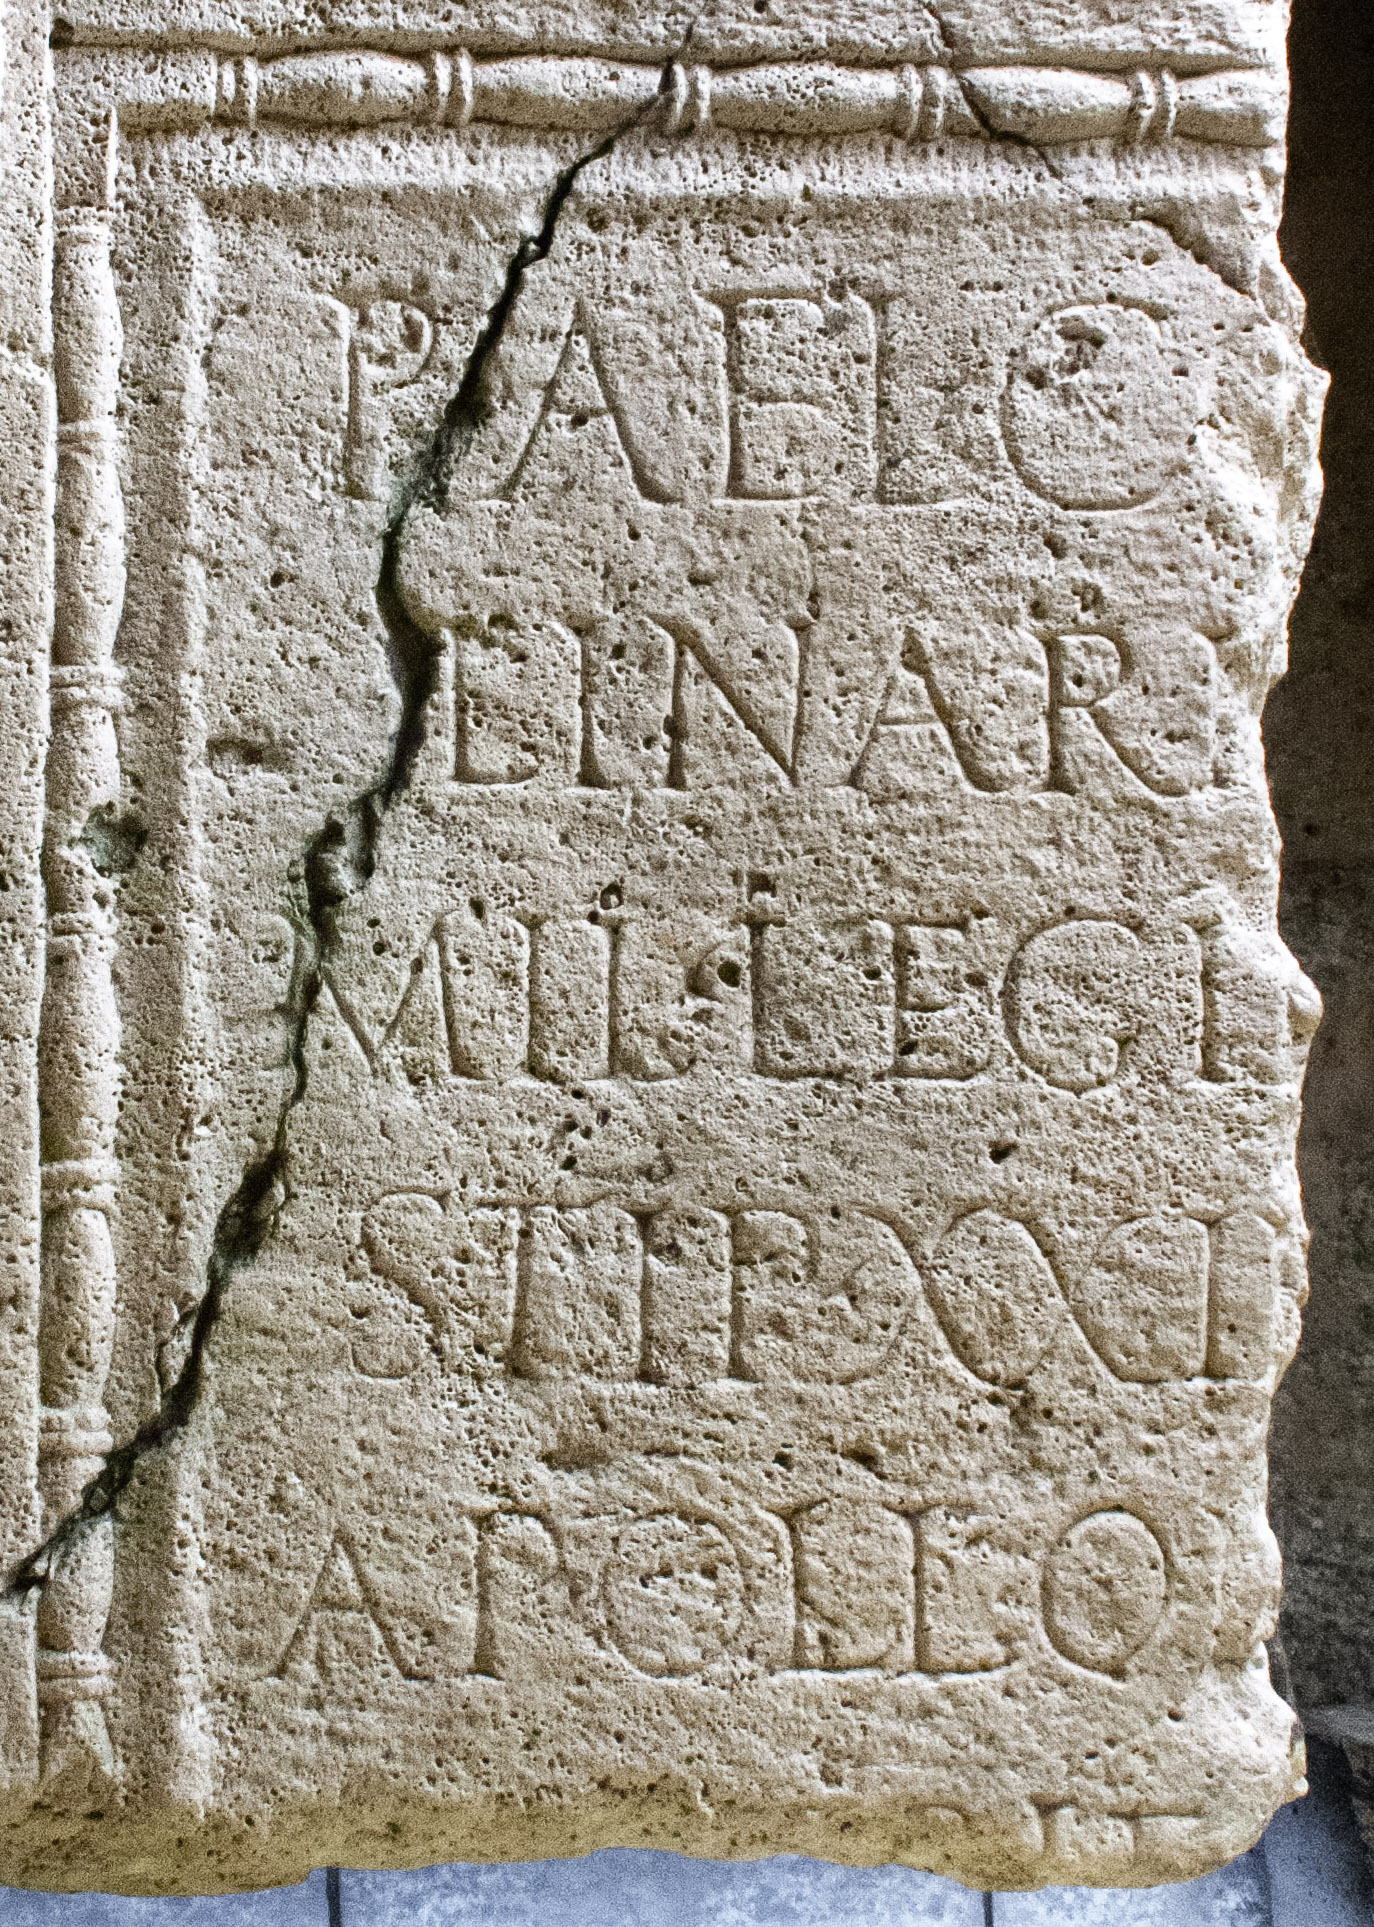 P AEL C
LINAR
MIL LEG I
STIP XVI
APOLLO